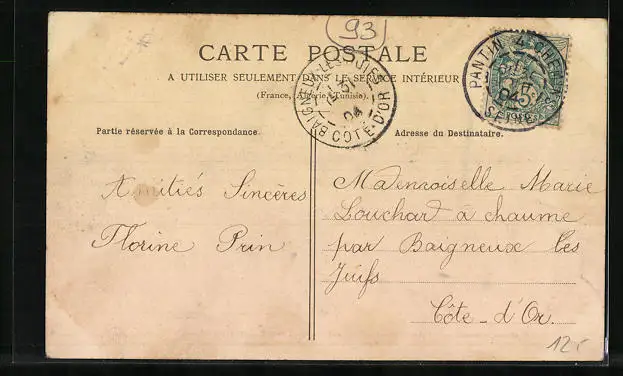 93
CARTE POSTALE
A UTILISER SEULEMENT DANS LE SERVICE INTÉRIEUR
(France, Algérie, Tunisie).
BAIGNEUX-LES-JUIFS
04
COTE-D'OR
PANTIN
04
SEINE
Partie réservée à la Correspondance.
Adresse du Destinataire.
Amitiés Sincères
Florine Prin
Mademoiselle Marie
Louchard à chaume
par Baigneux les
Juifs
Côte-d'Or.
12